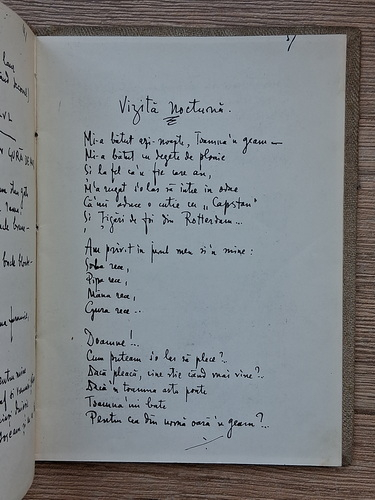 Vizită Nocturnă.
Mi-a bătut azi-noapte, Toamna'n geam —
Mi-a bătut cu degete de ploaie
Și la fel ca'n fie care an,
M'a rugat s'o las să intre in odae
Că'mi aduce o cutie cu „Capstan"
Și Țigări de foi din Rotterdam...
Am privit in jurul meu și'n mine:
Soba rece,
Pipa rece,
Mâna rece,
Gura rece..
Doamne!..
Cum puteam s'o las să plece?..
Dacă pleacă, cine știe când mai vine?..
Dacă'n toamna asta poate
Toamna'mi bate
Pentru cea din urmă oară'n geam?..